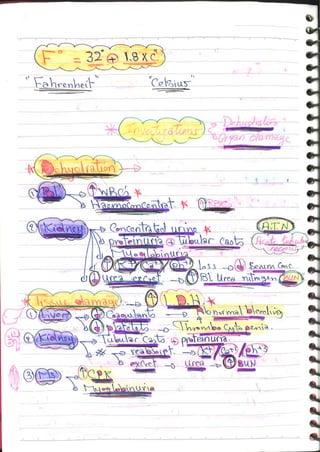 F° = 32° ⊕ 1.8 x C°
"Fahrenheit" "Celsius"
* Investigations Dehydration
Organ damage
* Dehydration →
① Bl. → ↑ WBCs *
→ Haemoconcentrat. * ↑ RBCs
② Kidney → Concentrated urine * A.T.N
→ proteinuria ⊕ Tubular Casts
→ Myoglobinuria
→ K+ Ca++ Ph+ loss → ↓ Serum Conc.
→ ↓ Urea excret → ↑ Bl. Urea nitrogen BUN
* Tissue damage → ↑ LDH *
① Liver → ↓ Coagulants → Abnormal bleeding
→ ↓ Platelets → Thrombocytopenia
② Kidney → Tubular Casts ⊕ proteinuria.
→ * → reabsorpt → K+/Ca++/ph+3
→ excret → urea → ↑ BUN
③ Ms → ↑ CPK
→ Myoglobinuria